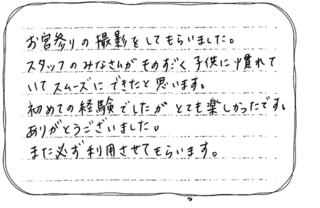 お宮参りの撮影をしてもらいました。
スタッフのみなさんがものすごく子供に慣れて
いてスムーズにできたと思います。
初めての経験でしたがとても楽しかったです。
ありがとうございました。
また必ず利用させてもらいます。